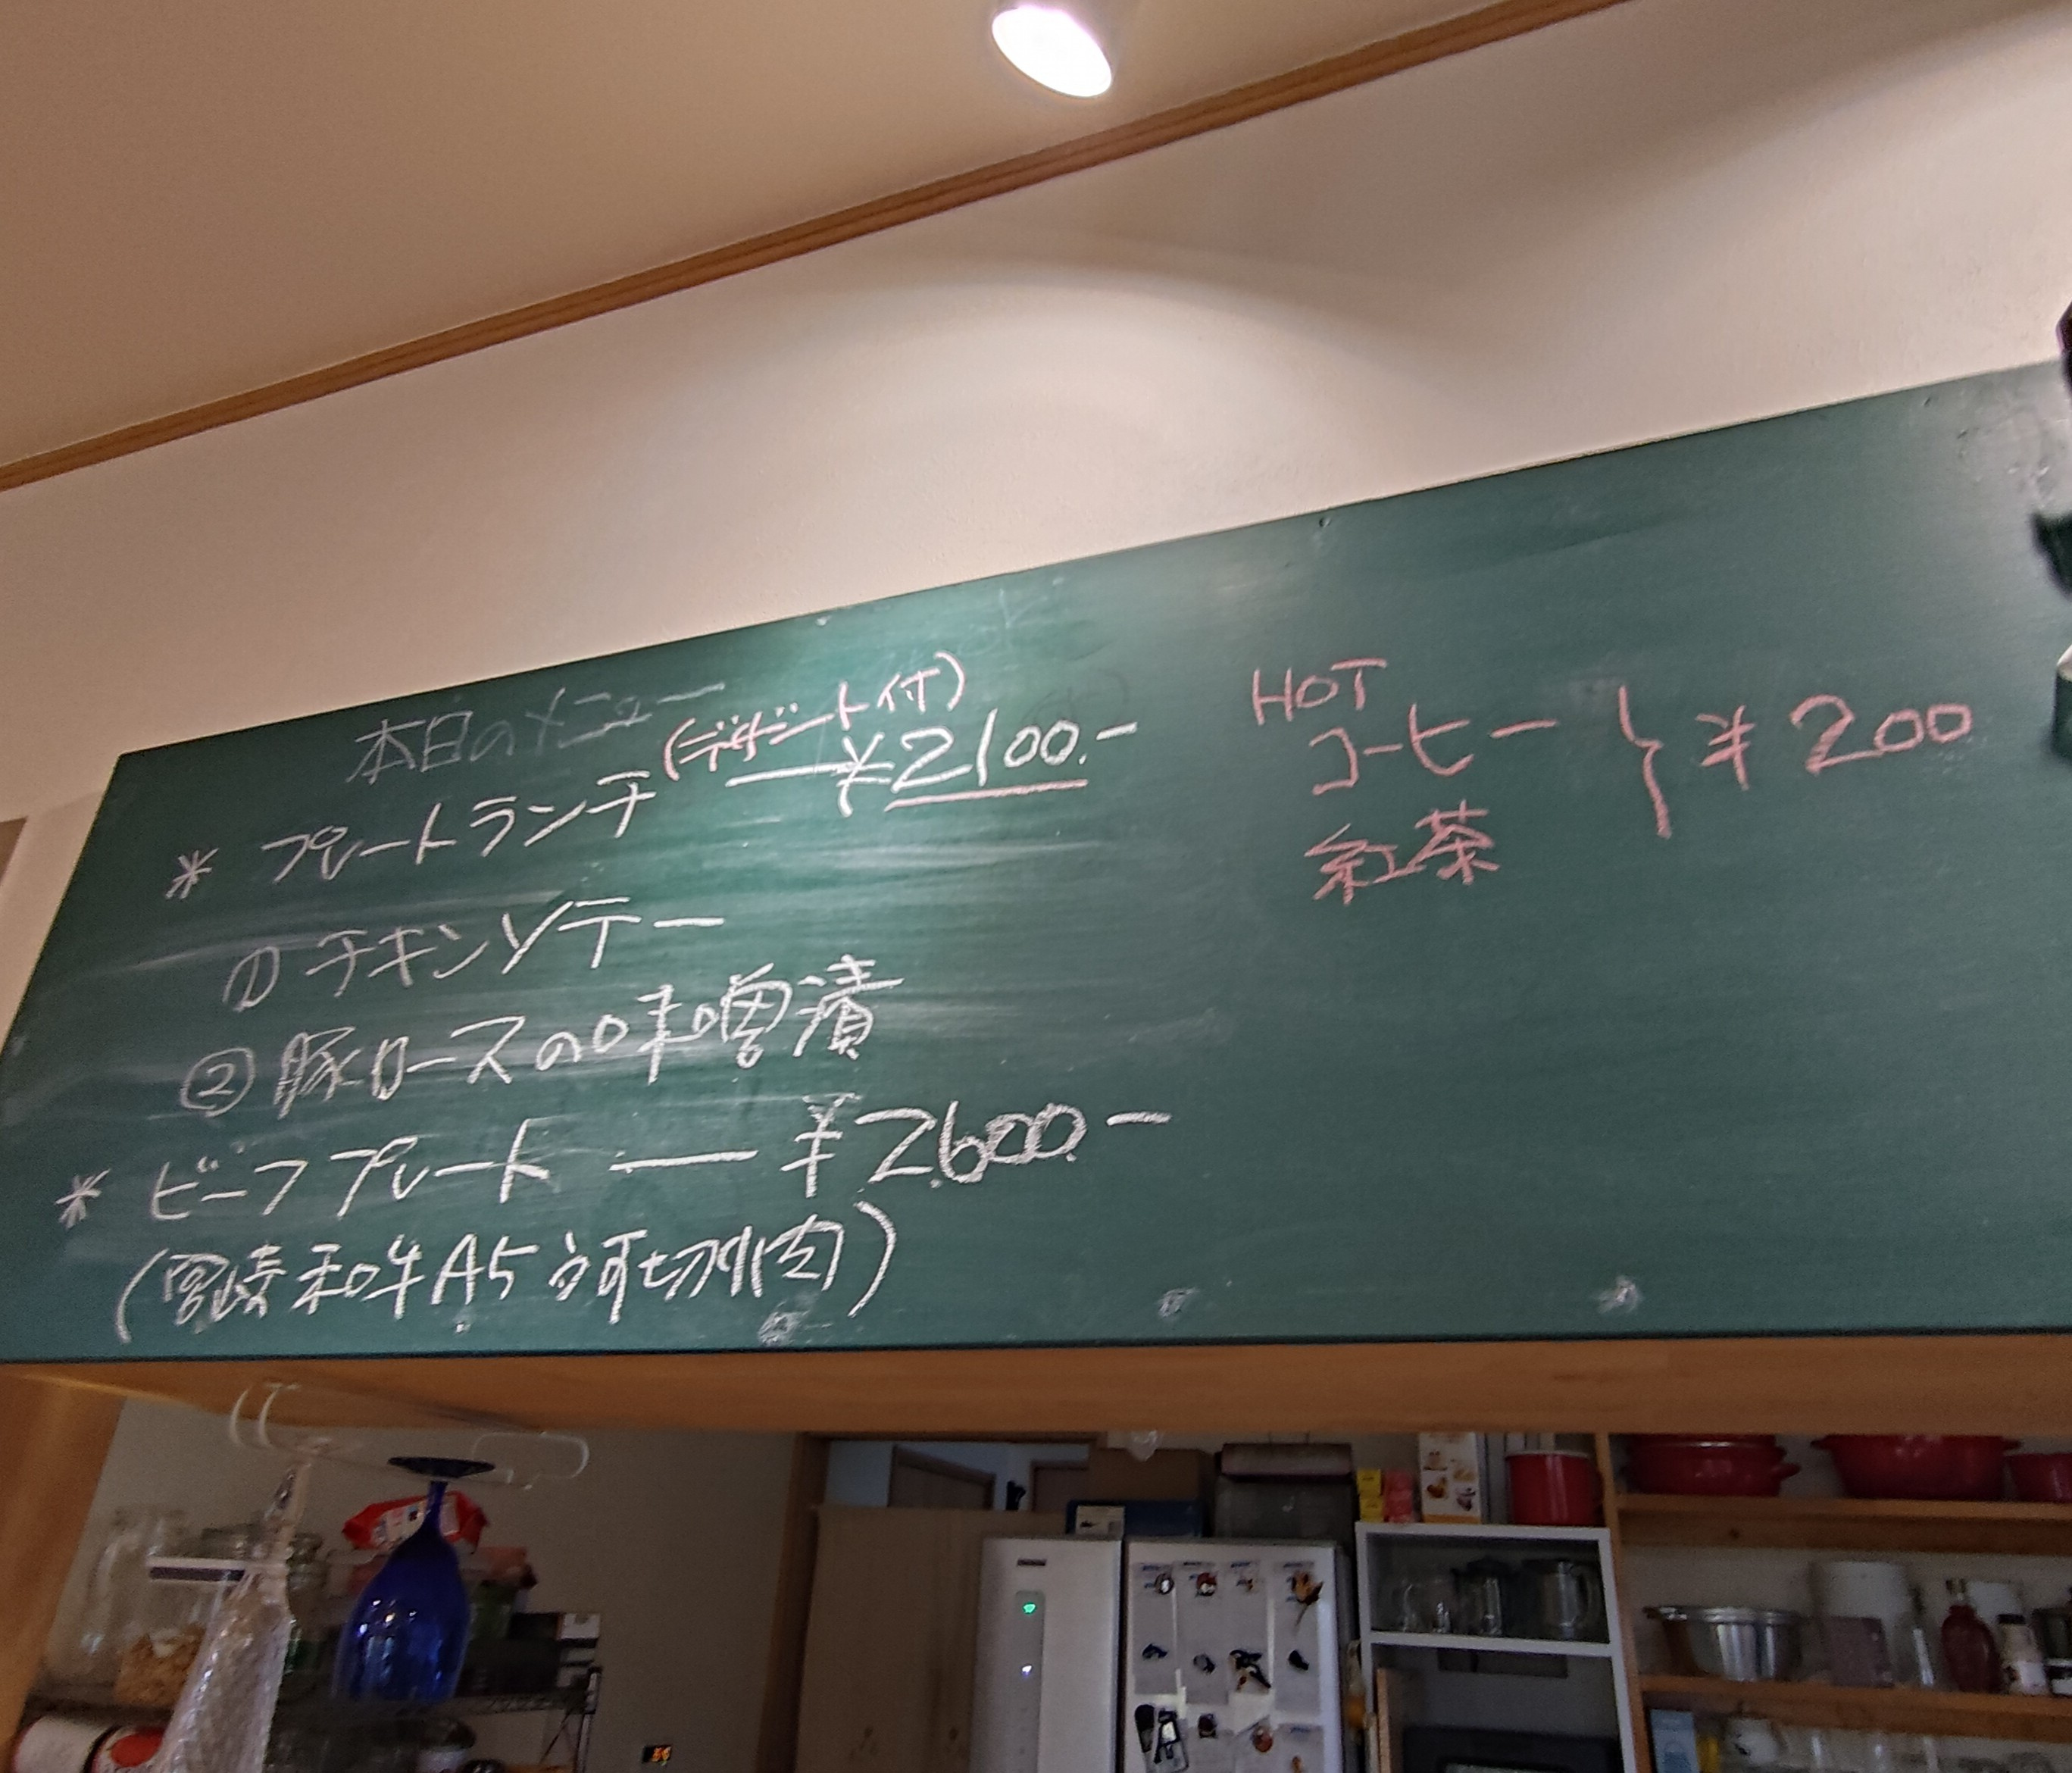 本日のメニュー
(デザート付)
* プレートランチ ― ¥2100.-
① チキンソテー
② 豚ロースの味噌漬
* ビーフプレート ― ¥2600.-
(宮崎和牛A5 切肉)
HOT
コーヒー } ¥200
紅茶